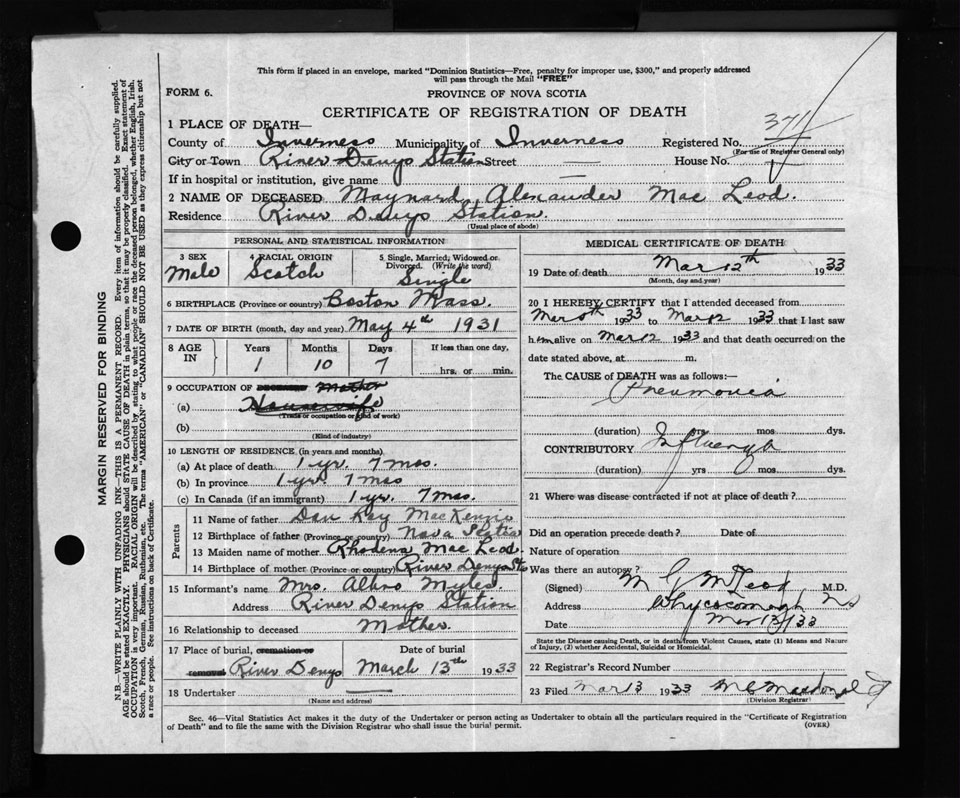 This form if placed in an envelope, marked "Dominion Statistics—Free, penalty for improper use, $300," and properly addressed
will pass through the Mail "FREE"
FORM 6.
PROVINCE OF NOVA SCOTIA
CERTIFICATE OF REGISTRATION OF DEATH
1 PLACE OF DEATH—
County of Inverness Municipality of Inverness Registered No. 371
(For use of Registrar General only)
City or Town River Denys Station Street — House No.
If in hospital or institution, give name —
2 NAME OF DECEASED Maynard Alexander Mac Leod.
Residence River Denys Station.
(Usual place of abode)
PERSONAL AND STATISTICAL INFORMATION
3 SEX 4 RACIAL ORIGIN 5 Single, Married, Widowed or
Divorced. (Write the word)
Male Scotch Single
6 BIRTHPLACE (Province or country) Boston Mass.
7 DATE OF BIRTH (month, day and year) May 4th 1931
8 AGE IN Years Months Days If less than one day,
1 10 7 hrs. or min.
9 OCCUPATION OF Mother
(a) Housewife
(Trade or occupation or kind of work)
(b)
(Kind of industry)
10 LENGTH OF RESIDENCE (in years and months)
(a) At place of death 1 yr. 7 mos.
(b) In province 1 yr. 7 mos
(c) In Canada (if an immigrant) 1 yr. 7 mos.
Parents
11 Name of father Dan Kay MacKenzie
12 Birthplace of father (Province or country) Nova Scotia
13 Maiden name of mother Rhodena Mac Leod.
14 Birthplace of mother (Province or country) River Denys Sta
15 Informant's name Mrs. Albro Myles
Address River Denys Station
16 Relationship to deceased Mother.
17 Place of burial, cremation or Date of burial
removal River Denys March 13th 1933
18 Undertaker —
(Name and address)
MEDICAL CERTIFICATE OF DEATH
19 Date of death Mar 12th 1933
(Month, day and year)
20 I HEREBY CERTIFY that I attended deceased from
Mar 1933 to Mar 12 1933 that I last saw
him alive on Mar 12 1933 and that death occurred on the
date stated above, at m.
The CAUSE of DEATH was as follows:—
Pneumonia
(duration) yrs mos dys.
CONTRIBUTORY Influenza
(duration) yrs mos dys.
21 Where was disease contracted if not at place of death?
Did an operation precede death? Date of
Nature of operation
Was there an autopsy?
(Signed) M G McLeod M.D.
Address Whycocomagh NS
Date Mar 13/33
State the Disease causing Death, or in death from Violent Causes, state (1) Means and Nature
of Injury, (2) whether Accidental, Suicidal or Homicidal.
22 Registrar's Record Number
23 Filed Mar 13 1933 Macdonald
(Division Registrar)
Sec. 46—Vital Statistics Act makes it the duty of the Undertaker or person acting as Undertaker to obtain all the particulars required in the "Certificate of Registration
of Death" and to file the same with the Division Registrar who shall issue the burial permit.
(OVER)
MARGIN RESERVED FOR BINDING
N.B.—WRITE PLAINLY WITH UNFADING INK—THIS IS A PERMANENT RECORD. Every item of information should be carefully supplied.
AGE should be stated EXACTLY. PHYSICIANS should STATE CAUSE OF DEATH in plain terms, so that it may be properly classified. Exact statement of
OCCUPATION is very important. RACIAL ORIGIN will be described by stating to what people or race the deceased person belonged, whether English, Irish,
Scotch, French, German, Russian, Ruthenian, etc. The terms "AMERICAN" or "CANADIAN" SHOULD NOT BE USED as they express citizenship but not
a race or people. See instructions on back of Certificate.